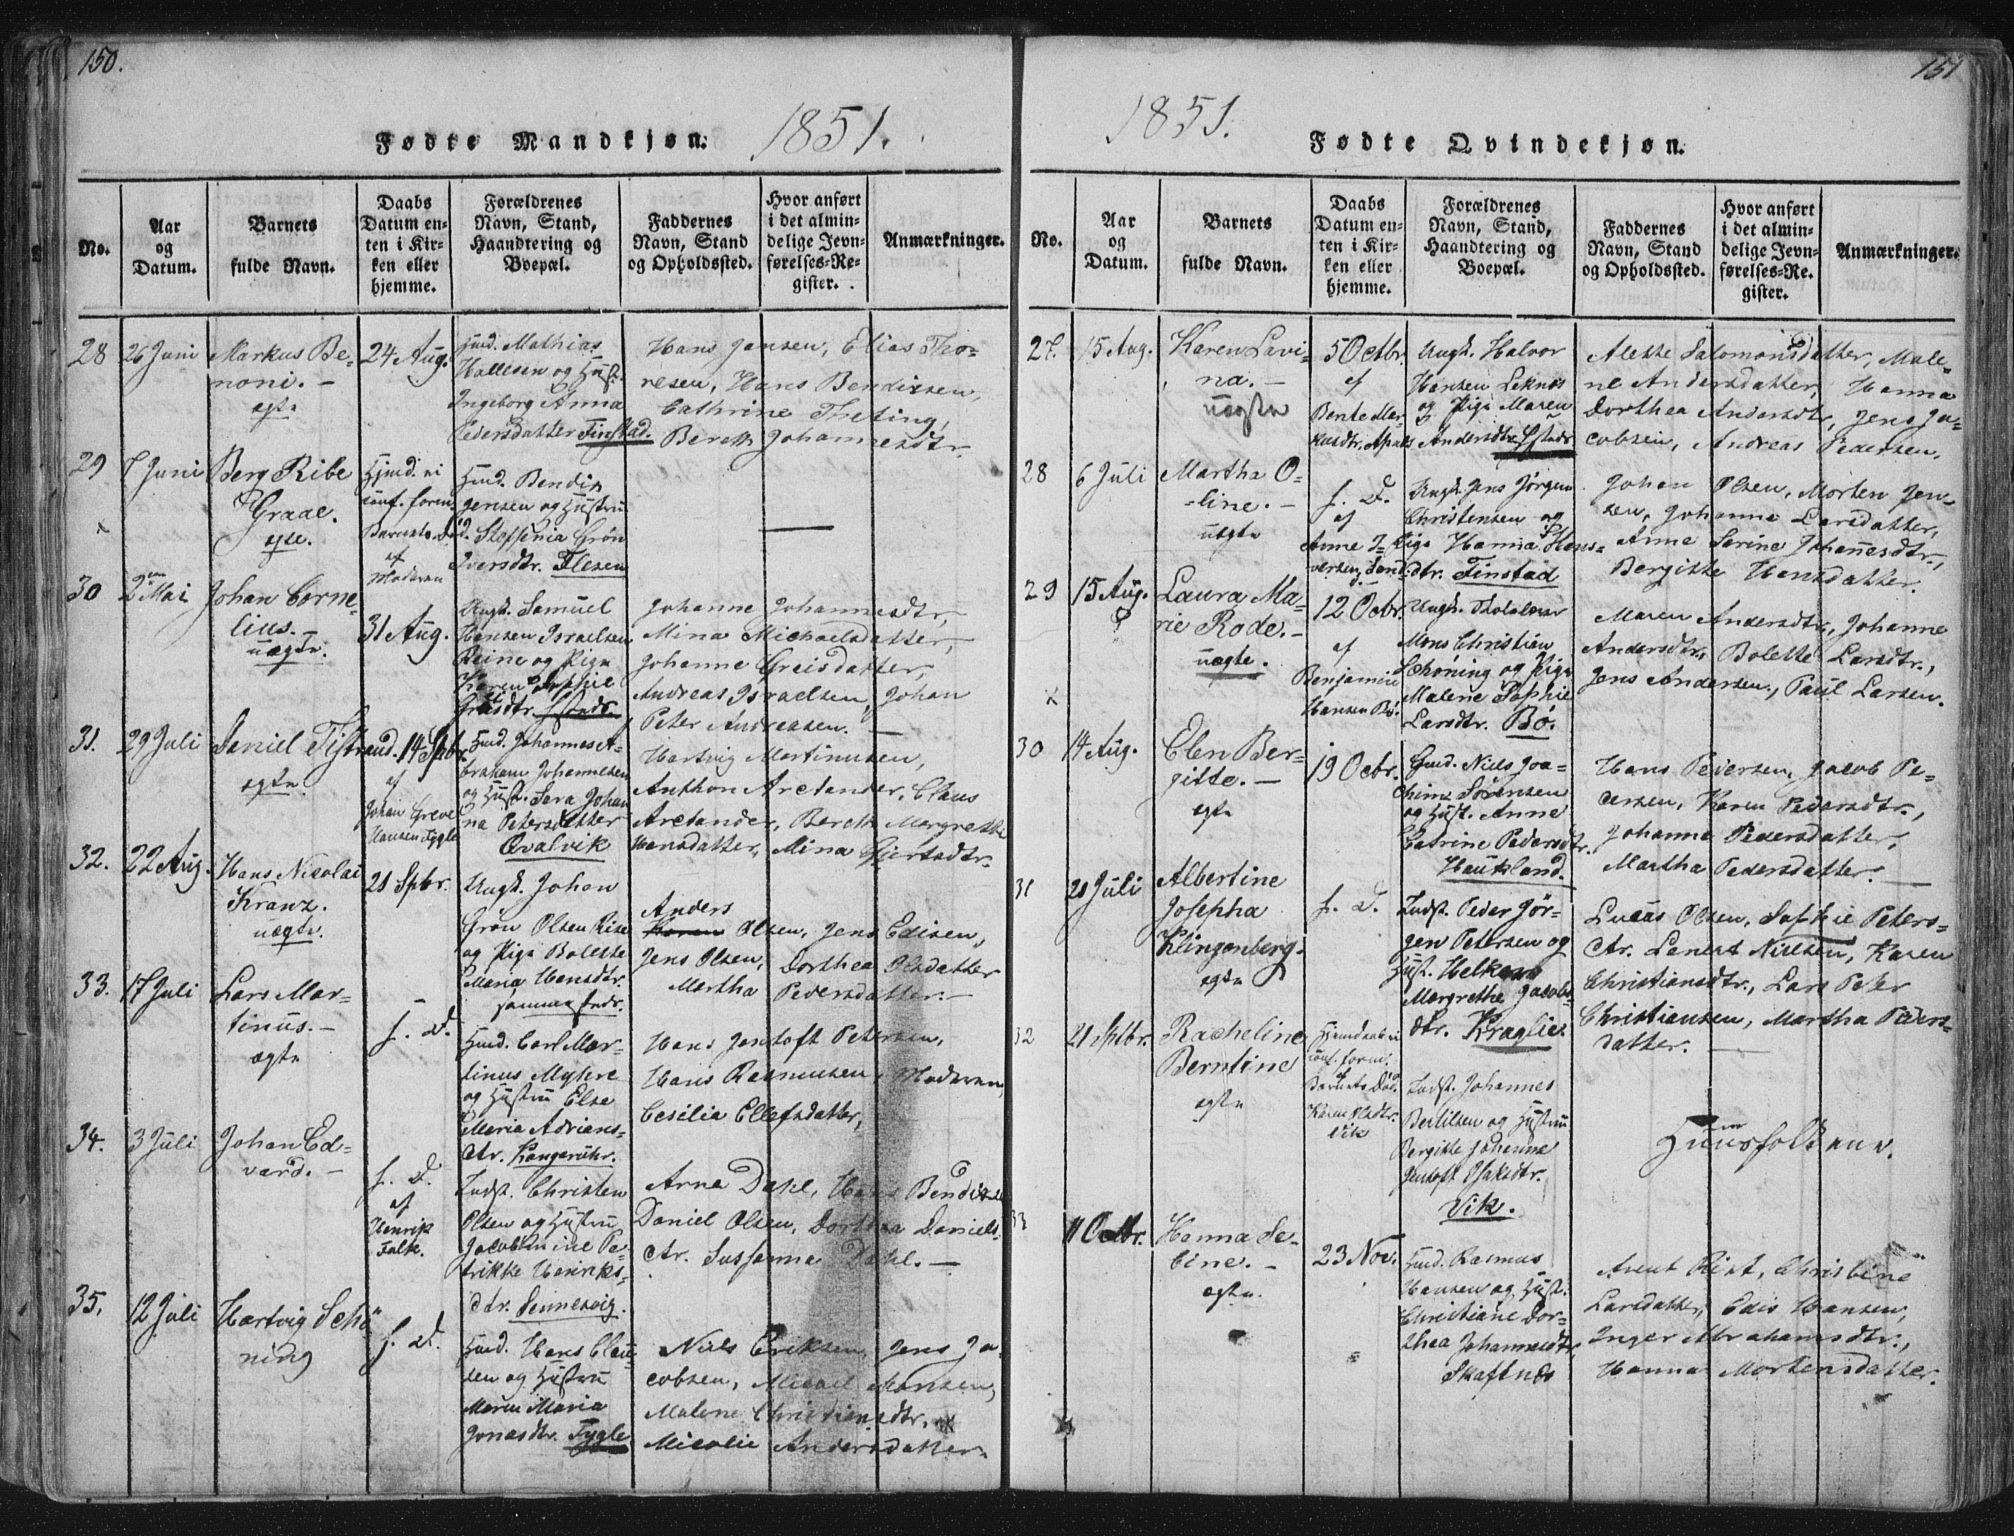 150.
Fødte Mandkjøn. 1851.
No.
Aar
og
Datum.
Barnets
fulde Navn.
Daabs
Datum en-
ten i Kir-
ken eller
hjemme.
Forældrenes
Navn, Stand,
Haandtering og
Boepæl.
Faddernes
Navn, Stand
og Opholdssted.
Hvor anført
i det almin-
delige Jevn-
førelses-Re-
gister.
Anmærkninger.
28
26 Juni
Markus Be-
noni. -
ægte
24 Aug.
Huusm. Mathias
Hallesen og Hust.
Ingeborg Anna
Pedersdatter Finstad.
Hans Jensen, Elias Tho-
resen, Hans Bendixen,
Cathrine Theting,
Bereth Johannesdtr.
29
7 Juni
Berg Ribe
Graae.
ægte.
Hjmd. vi
conf. form.
Barnets D.
af
Moderen
Huusm. Bendix
Jensen og Hustru
Steffenia Grøn
Iversdtr. Flesen
30
2 Mai
Johan Corne-
lius.
uægte.
31 Aug.
Ungk. Samuel
Hansen Israelsen
Reine og Pige
Karen Sophie
Johanne Johannesdtr,
Mina Michaelsdatter,
Johanne Greisdatter,
Andreas Israelsen, Johan
Peter Andreasen. -
31.
29 Juli
Daniel Tistrand.
ægte
14 Spbr.
af
Johan Greve
Hansen Fygle
Huusm. Johannes A-
braham Johannesen
og Hust. Sara Johan
na Petersdatter
Qvalvik
Hartvig Martinusen,
Anthon Arctander, Claus
Arctander, Bereth Margrethe
Hansdatter, Mina Gjertsdtr.
32.
22 Aug.
Hans Nicolai
Kranz.
uægte.
21 Spbr.
Ungk. Johan
Grøn Olsen Rise
og Pige Bolette
Maria Hansdtr.
sammestedr.
Anders
Olsen, Jens Edisen,
Jens Olsen, Dorthea Olsdatter
Martha Pedersdatter. -
33.
17 Juli
Lars Mar-
tinus. -
ægte
f. D.
Huusm. Carl Mar-
tinus Mylere
og Hustru Else
Maria Adrians-
dtr. Kangerühr.
Hans Jentoft Petersen,
Hans Rasmusen, Moderen,
Cesilia Ellefsdatter,
34.
3 Juli
Johan Ed-
vard. -
f. D.
af
Henrik
Falk.
Indst. Christen
Olsen og Hustru
Jacobmine Pe-
trikke Henriks-
dtr. Sennesvig.
Arna Dahl, Hans Bendixen
Daniel Olsen, Dorthea Daniels-
dtr. Sussanna Dahl. -
35.
12 Juli
Hartvig Schö-
ning
f. D.
Huusm. Hans Clau-
sen og Hustru
Maren Maria
Jonasdtr. Fygle
Niels Eriksen, Jens Ja-
cobsen, Micael Monsen,
Malene Christiansdtr.
Micolie Andersdatter.
151
1851.
Fødte Qvindekjøn.
No.
Aar
og
Datum.
Barnets
fulde Navn.
Daabs
Datum en-
ten i Kir-
ken eller
hjemme.
Forældrenes
Navn, Stand,
Haandtering og
Boepæl.
Faddernes
Navn, Stand
og Opholdssted.
Hvor anført
i det almin-
delige Jevn-
førelses-Re-
gister.
Anmærkninger.
27.
15 Aug.
Karen Lavi-
na. -
uægte
5 Octbr.
af
Bente Mar-
kusdtr.
Ungk. Halvor
Hansen Leknes
og Pige Maren
Andersdtr.
Alette Salomonsdatter, Male-
ne Andersdatter, Hanna
Dorthea Andersdtr, Jens Ja-
cobsen, Andreas Pedersen.
28
6 Juli
Martha O-
-line. -
uægte
f. D.
af
Anne I-
versen, Sand
Ungk. Jens Jørgen
Christensen og
Pige Hanna Hans-
dtr. Finstad
Johan Olsen, Morten Jen-
sen, Johanna Larsdatter,
Anne Serine Johannesdtr,
Bergitte Hansdatter.
29
15 Aug.
Laura Ma-
rie Rode. -
uægte.
12 Octbr.
af
Benjamin
Hansen Bø.
Mons Christian
Schøning og Pige
Malene Sophie
Larsdtr. Bø.
Maren Andersdtr, Johanne
Andersdtr, Bolette Larsdtr.,
Jens Andersen, Paul Larsen.
30
14 Aug.
Elen Ber-
gitte. -
ægte
19 Octbr.
Huusm. Niels Joa-
chim Sörensen
og Hust. Anne
Catrine Pedersdtr.
Haukland.
Hans Pedersen, Jacob Pe-
dersen, Karen Pedersdtr.,
Johanna Pedersdatter,
Martha Pedersdatter. -
31
21 Juli
Albertine
Josepha
Klingenberg.
ægte
f. D.
Indst. Peder Jör-
gen Petersen og
Hust.
Margrethe Jacobs-
dtr. Kraglie.
Lucas Olsen, Sophie Peters-
dtr. Lenert Nielsen, Karen
Christiansdtr., Lars Peter
Christiansen, Martha Peders-
datter. -
32
21 Sptbr.
Racheline
Berntine
ægte
Hjemdaab vi
conf. form.
Barnets Död
Karen Olsdtr.
Vik
Indst. Johannes
Bertilsen og Hustru
Bergitte Johanne
Jentoft Isaksdtr.
Vik.
Huusfolkene.
33
11 Octbr.
Hanna Se-
line. -
ægte.
23 Nov.
Huusm. Rasmus
Hansen og Hust.
Christiane Dor-
thea Johannesdtr,
Skaftnes
Arent Rist, Christine
Larsdatter, Edis Hansen,
Inger Abrahamsdtr.,
Hanna Mortensdatter.